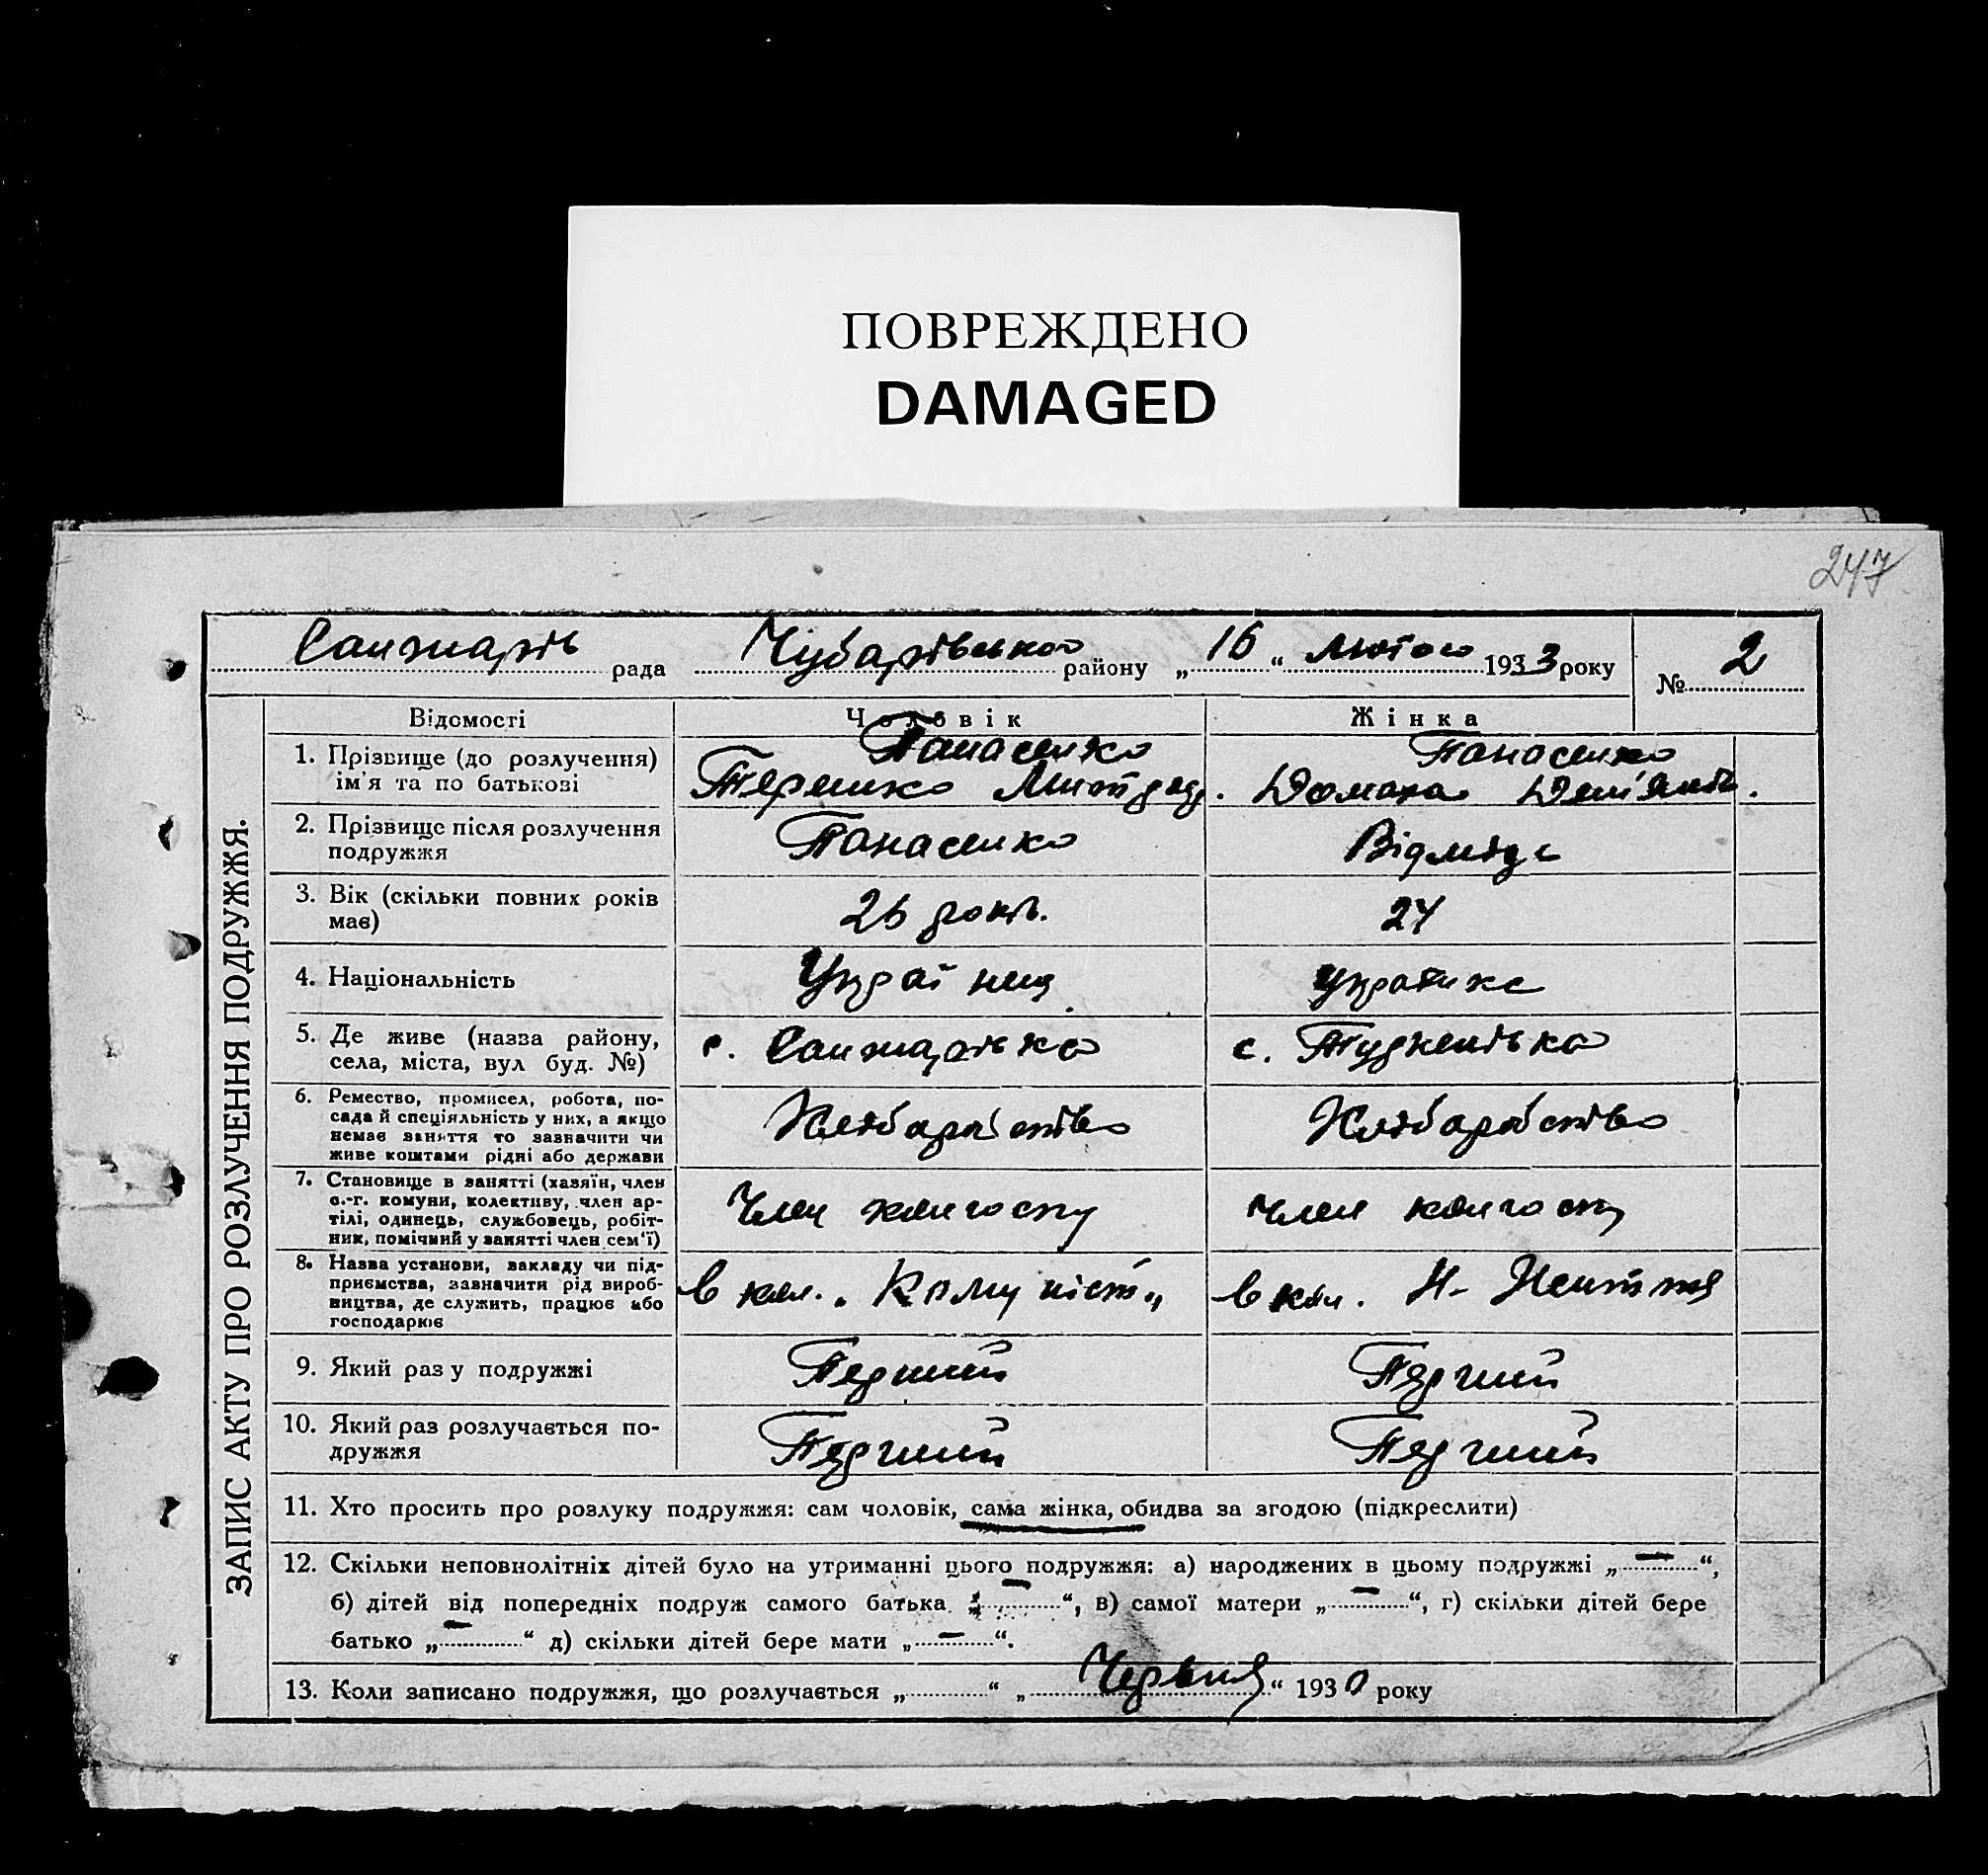 ПОВРЕЖДЕНО
DAMAGED
247
Санжарів рада Чубарівського району „ 16 “ лютого 1933 року № 2
ЗАПИС АКТУ ПРО РОЗЛУЧЕННЯ ПОДРУЖЖЯ.
Відомості Чоловік Жінка
1. Прізвище (до розлучення) Панасенко Панасенко
ім'я та по батькові Терешко Домаха
2. Прізвище після розлучення Панасенко
подружжя
3. Вік (скільки повних років 26 років. 24
має)
4. Національність Українец українка
5. Де живе (назва району, с. Санжарівка с.
села, міста, вул буд. №)
6. Ремество, промисел, робота, по- Хліборобство Хліборобство
сада й спеціяльність у них, а якщо
немає заняття то зазначити чи
живе коштами рідні або держави
7. Становище в занятті (хазяїн, член Член колгоспу член колгоспу
с.-г. комуни, колективу, член ар-
тілі, одинець, службовець, робіт-
ник, помічний у занятті член сем'ї)
8. Назва установи, закладу чи під- в кол. „Комуніст„ в кол. Н-Життя
приємства, зазначити рід вироб-
ництва, де служить, працює або
господарює
9. Який раз у подружжі Перший Перший
10. Який раз розлучається по- Перший Перший
дружжя
11. Хто просить про розлуку подружжя: сам чоловік, сама жінка, обидва за згодою (підкреслити)
12. Скільки неповнолітніх дітей було на утриманні цього подружжя: а) народжених в цьому подружжі „—“,
б) дітей від попередніх подруж самого батька „—“, в) самої матери „—“, г) скільки дітей бере
батько „—“ д) скільки дітей бере мати „—“.
13. Коли записано подружжя, що розлучається „ “ „ Червня “ 1930 року